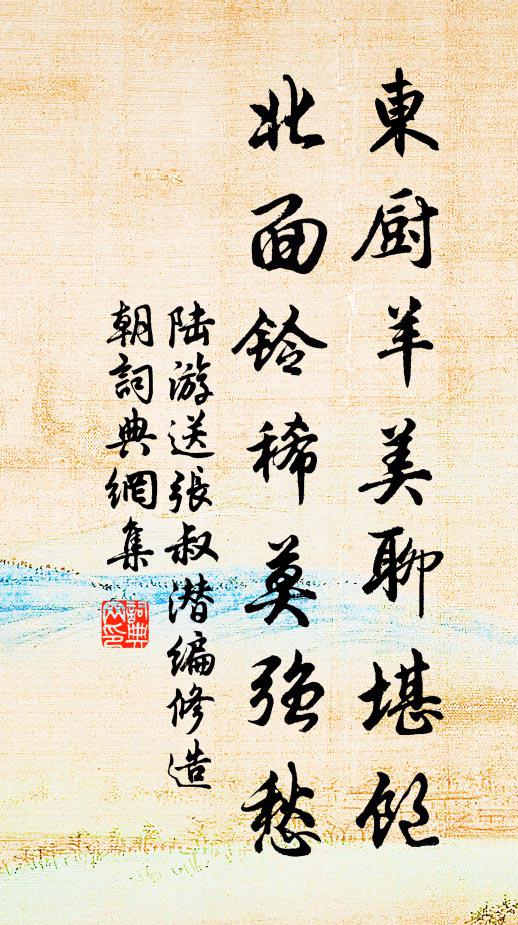 東厨羊美聊堪飽
北面鈴稀莫強愁
陆游送張叔潜編修造
朝詞典網集